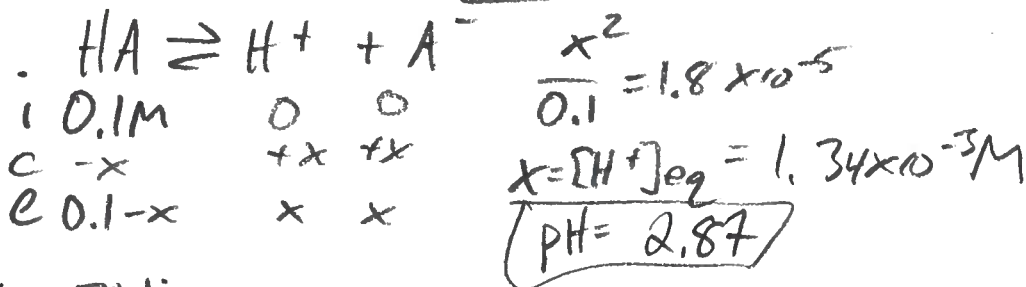 HA ⇌ H⁺ + A⁻
i 0.1M 0 0
c -x +x +x
e 0.1-x x x
x²/0.1 = 1.8 x10⁻⁵
x=[H⁺]eq = 1.34x10⁻³M
pH= 2.87